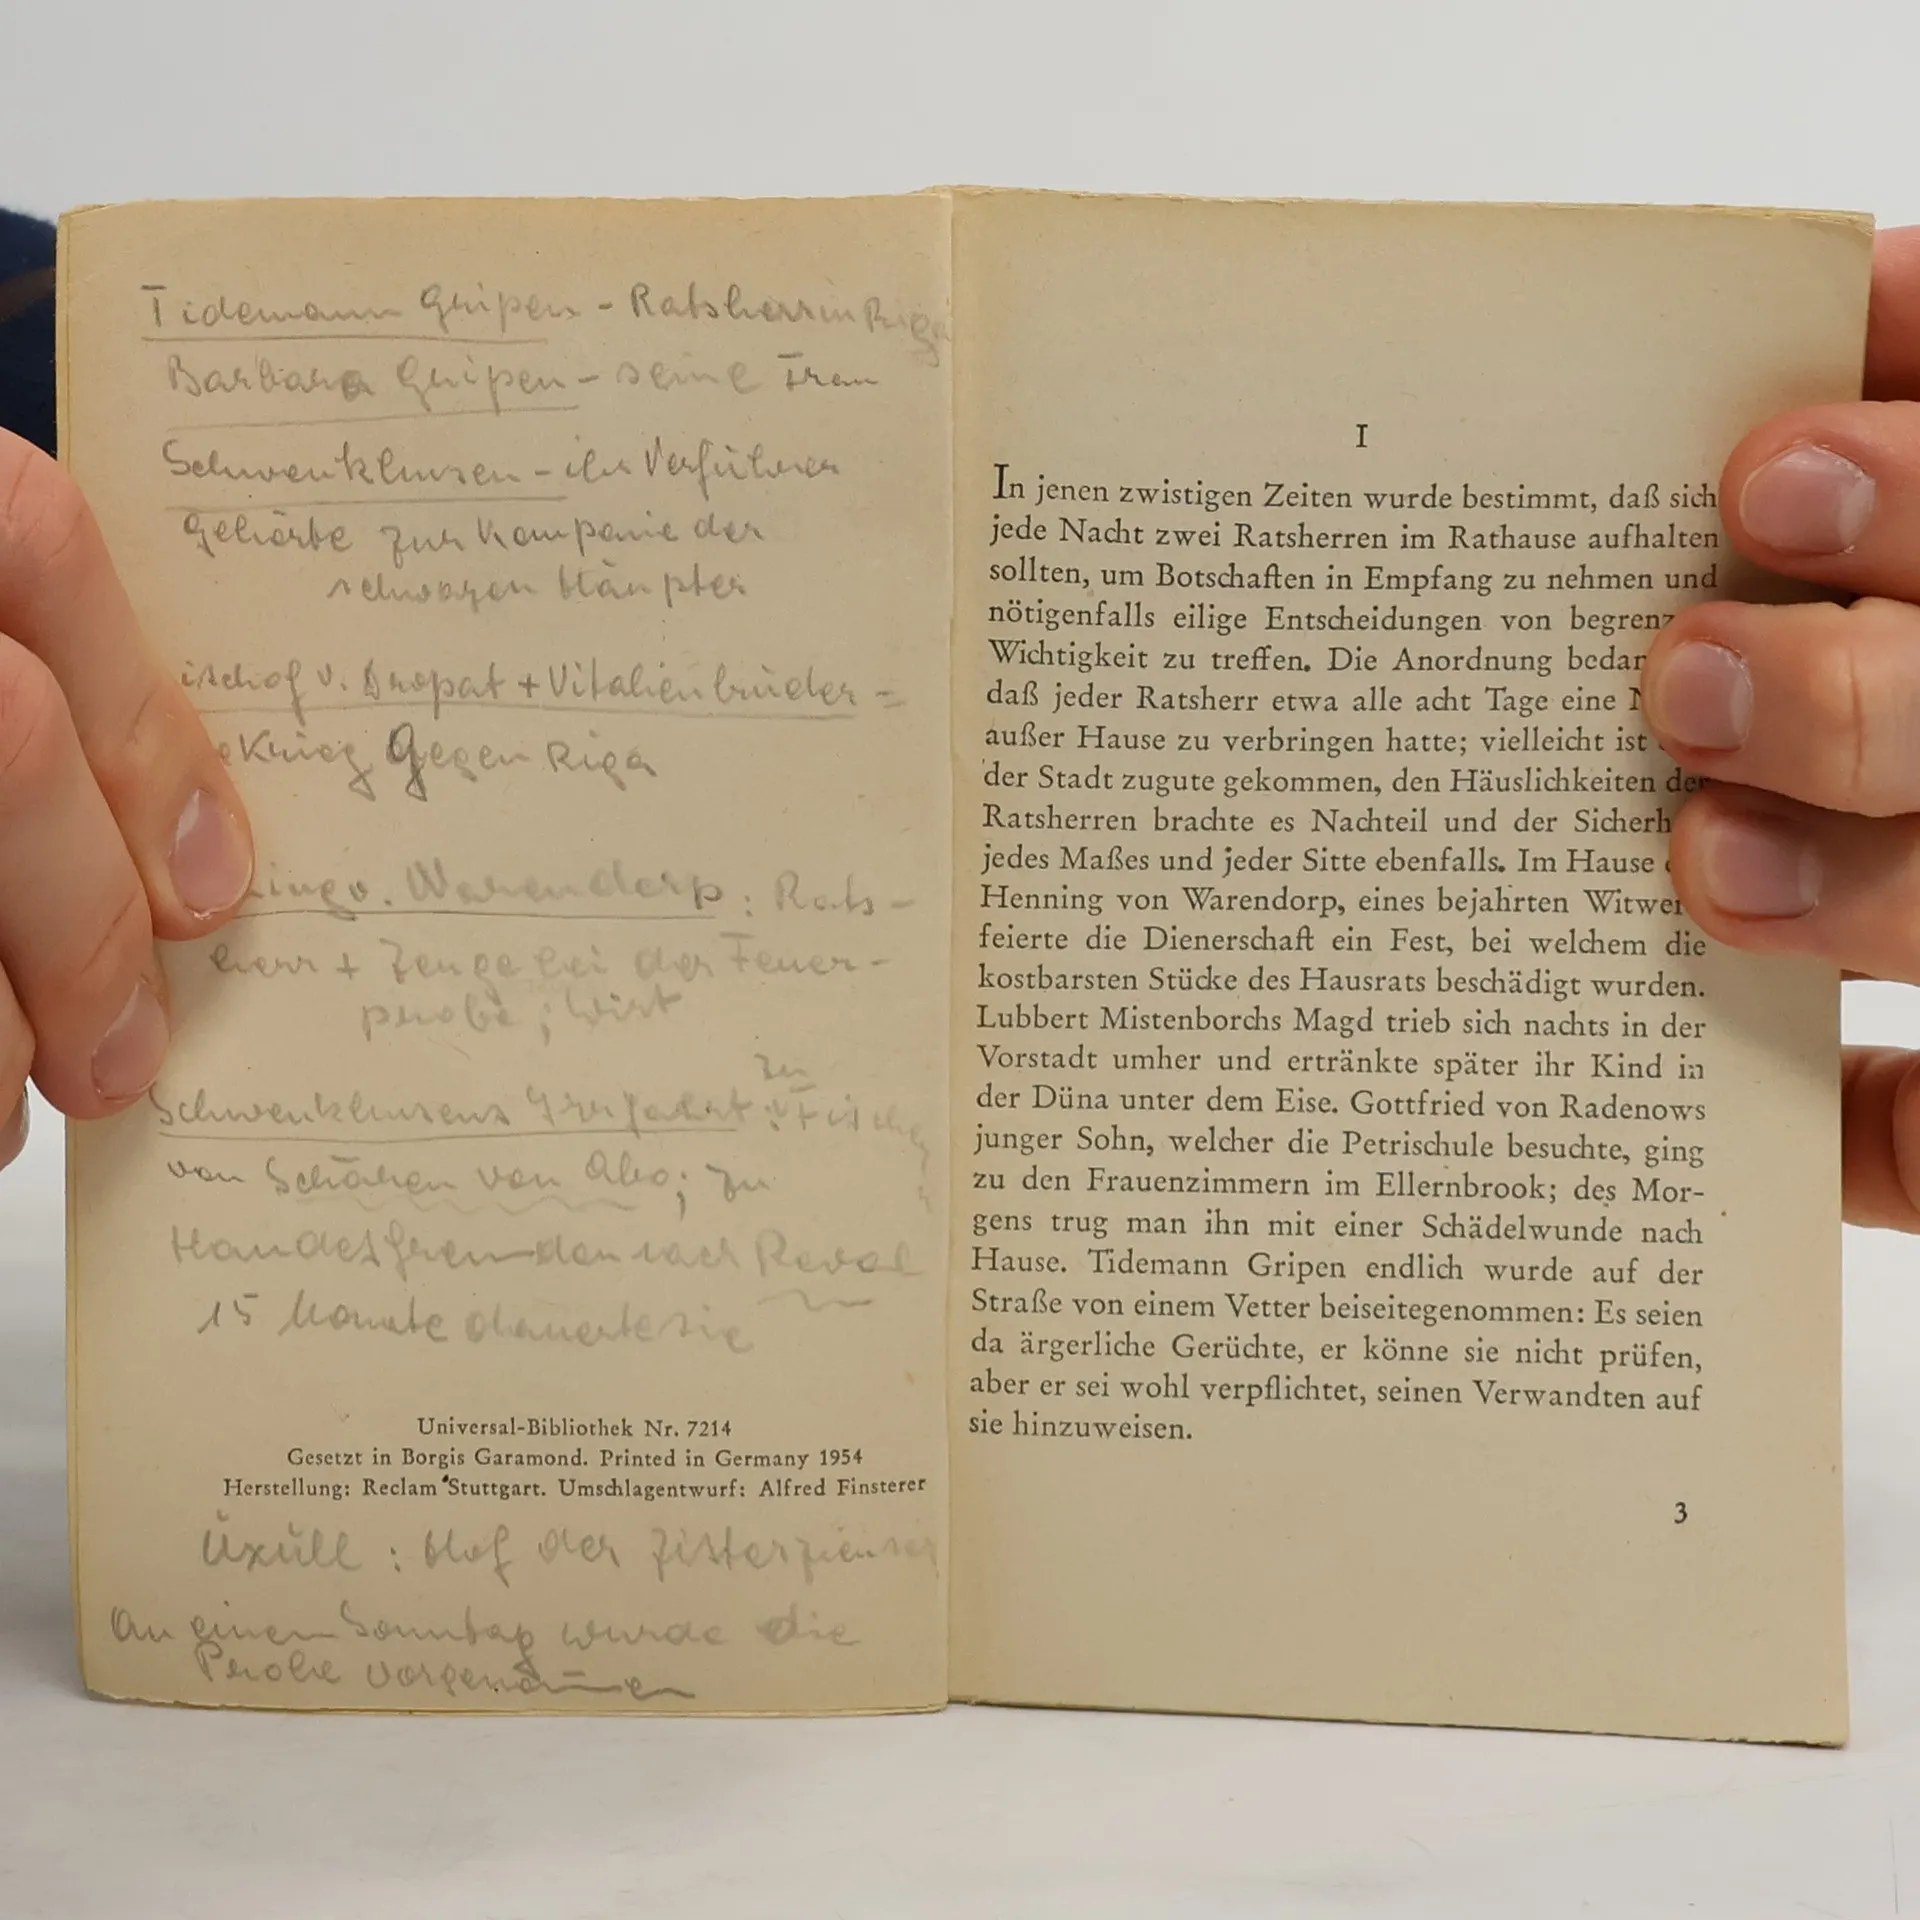 Tidemann Gripen - Ratsherr in Riga
Barbara Gripen - seine Frau
Schwenkhusen - ihr Verführer
gehörte zur Kompanie der
schwarzen Häupter
ischof v. Dropat + Vitalienbrüder =
Krieg gegen Riga
v. Warendorp : Rats-
herr + Zeuge bei der Feuer-
probe ; Wirt
zu
Schwenkhusens Irrfahrt :
von Schären von Abo; zu
Handelsfreunden nach Reval
15 Monate dauerte sie
Universal-Bibliothek Nr. 7214
Gesetzt in Borgis Garamond. Printed in Germany 1954
Herstellung: Reclam Stuttgart. Umschlagentwurf: Alfred Finsterer
Üxüll : Hof der Zisterzienser
An einem Sonntag wurde die
Probe vorgenom̄en
I
In jenen zwistigen Zeiten wurde bestimmt, daß sich
jede Nacht zwei Ratsherren im Rathause aufhalten
sollten, um Botschaften in Empfang zu nehmen und
nötigenfalls eilige Entscheidungen von begrenz
Wichtigkeit zu treffen. Die Anordnung bedar
daß jeder Ratsherr etwa alle acht Tage eine N
außer Hause zu verbringen hatte; vielleicht ist
der Stadt zugute gekommen, den Häuslichkeiten der
Ratsherren brachte es Nachteil und der Sicherh
jedes Maßes und jeder Sitte ebenfalls. Im Hause
Henning von Warendorp, eines bejahrten Witwer
feierte die Dienerschaft ein Fest, bei welchem die
kostbarsten Stücke des Hausrats beschädigt wurden.
Lubbert Mistenborchs Magd trieb sich nachts in der
Vorstadt umher und ertränkte später ihr Kind in
der Düna unter dem Eise. Gottfried von Radenows
junger Sohn, welcher die Petrischule besuchte, ging
zu den Frauenzimmern im Ellernbrook; des Mor-
gens trug man ihn mit einer Schädelwunde nach
Hause. Tidemann Gripen endlich wurde auf der
Straße von einem Vetter beiseitegenommen: Es seien
da ärgerliche Gerüchte, er könne sie nicht prüfen,
aber er sei wohl verpflichtet, seinen Verwandten auf
sie hinzuweisen.
3